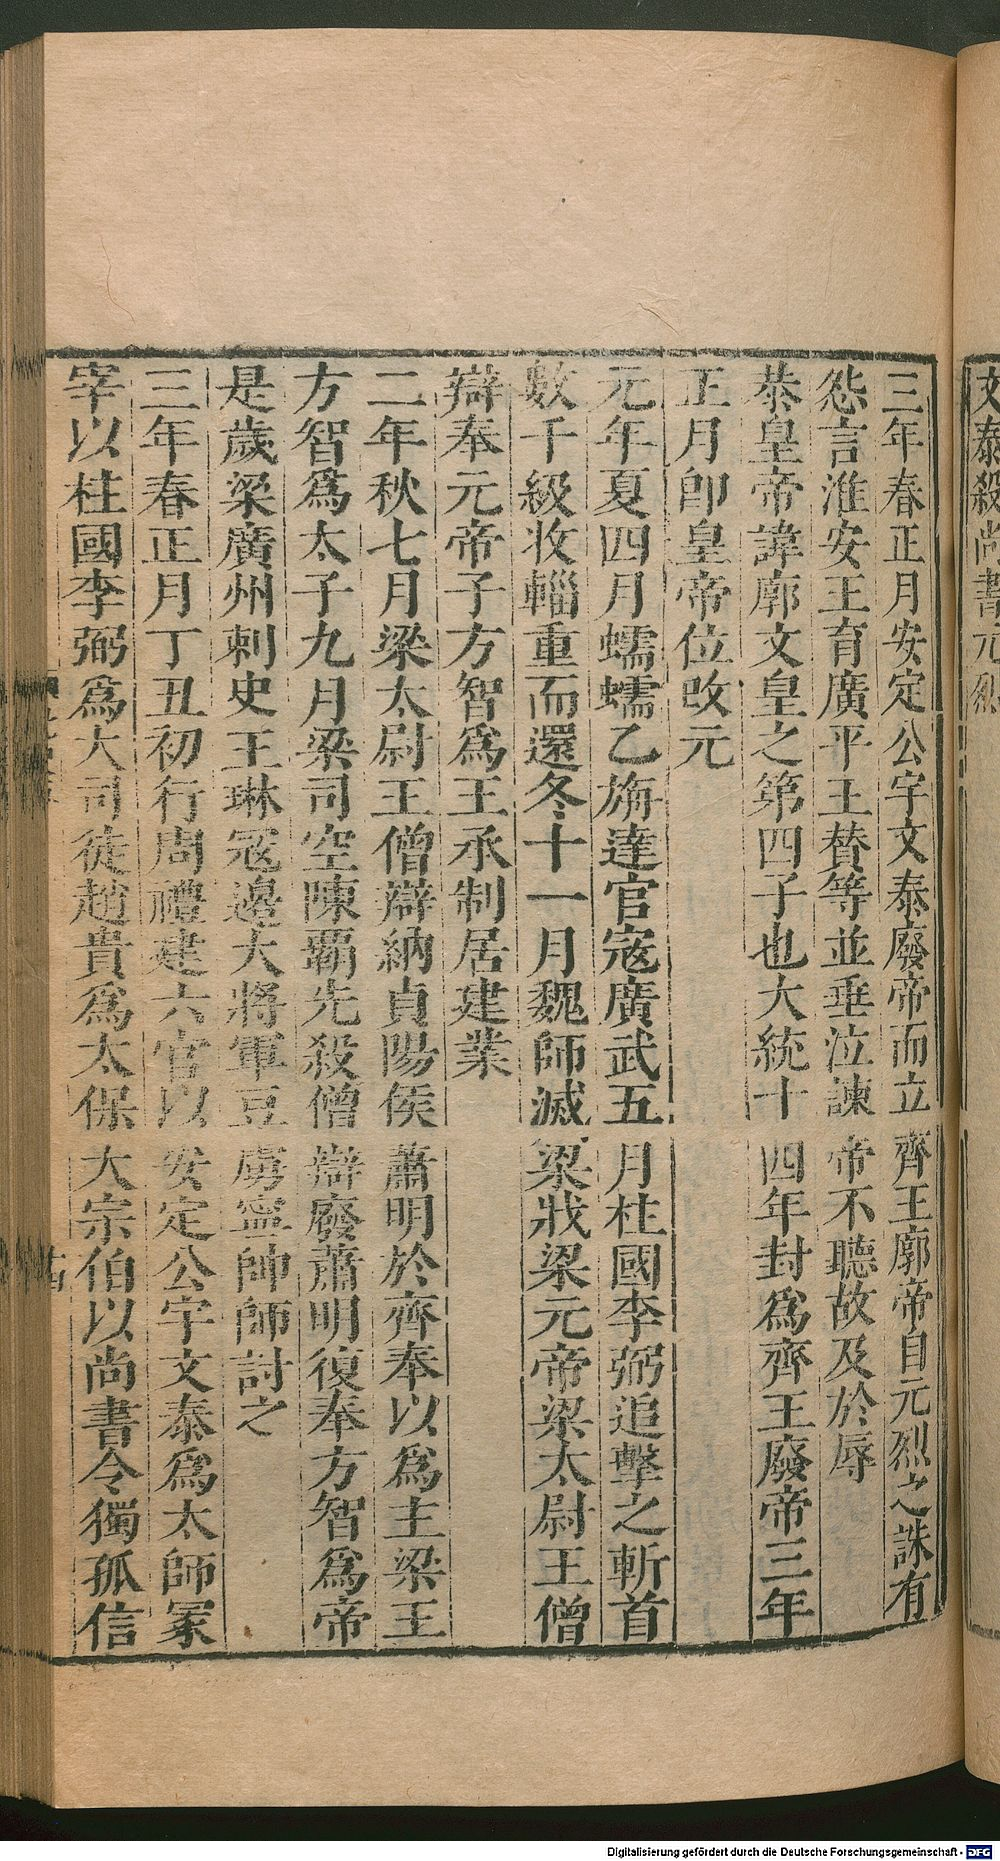 文泰殺尚書元烈
三年春正月安定公宇文泰廢帝而立齊王廓帝自元烈之誅有
怨言淮安王育廣平王贊等並垂泣諫帝不聽故及於辱
恭皇帝諱廓文皇之第四子也大統十四年封爲齊王廢帝三年
正月卽皇帝位改元
元年夏四月蠕蠕乙旃達官寇廣武五月柱國李弼追擊之斬首
數千級收輜重而還冬十一月魏師滅梁戕梁元帝梁太尉王僧
辯奉元帝子方智爲王承制居建業
二年秋七月梁太尉王僧辯納貞陽侯蕭明於齊奉以爲主梁王
方智爲太子九月梁司空陳霸先殺僧辯廢蕭明復奉方智爲帝
是歲梁廣州刺史王琳寇邊大將軍豆盧寧帥師討之
三年春正月丁丑初行周禮建六官以安定公宇文泰爲太師冢
宰以柱國李弼爲大司徒趙貴爲太保大宗伯以尚書令獨孤信
Digitalisierung gefördert durch die Deutsche Forschungsgemeinschaft - DFG